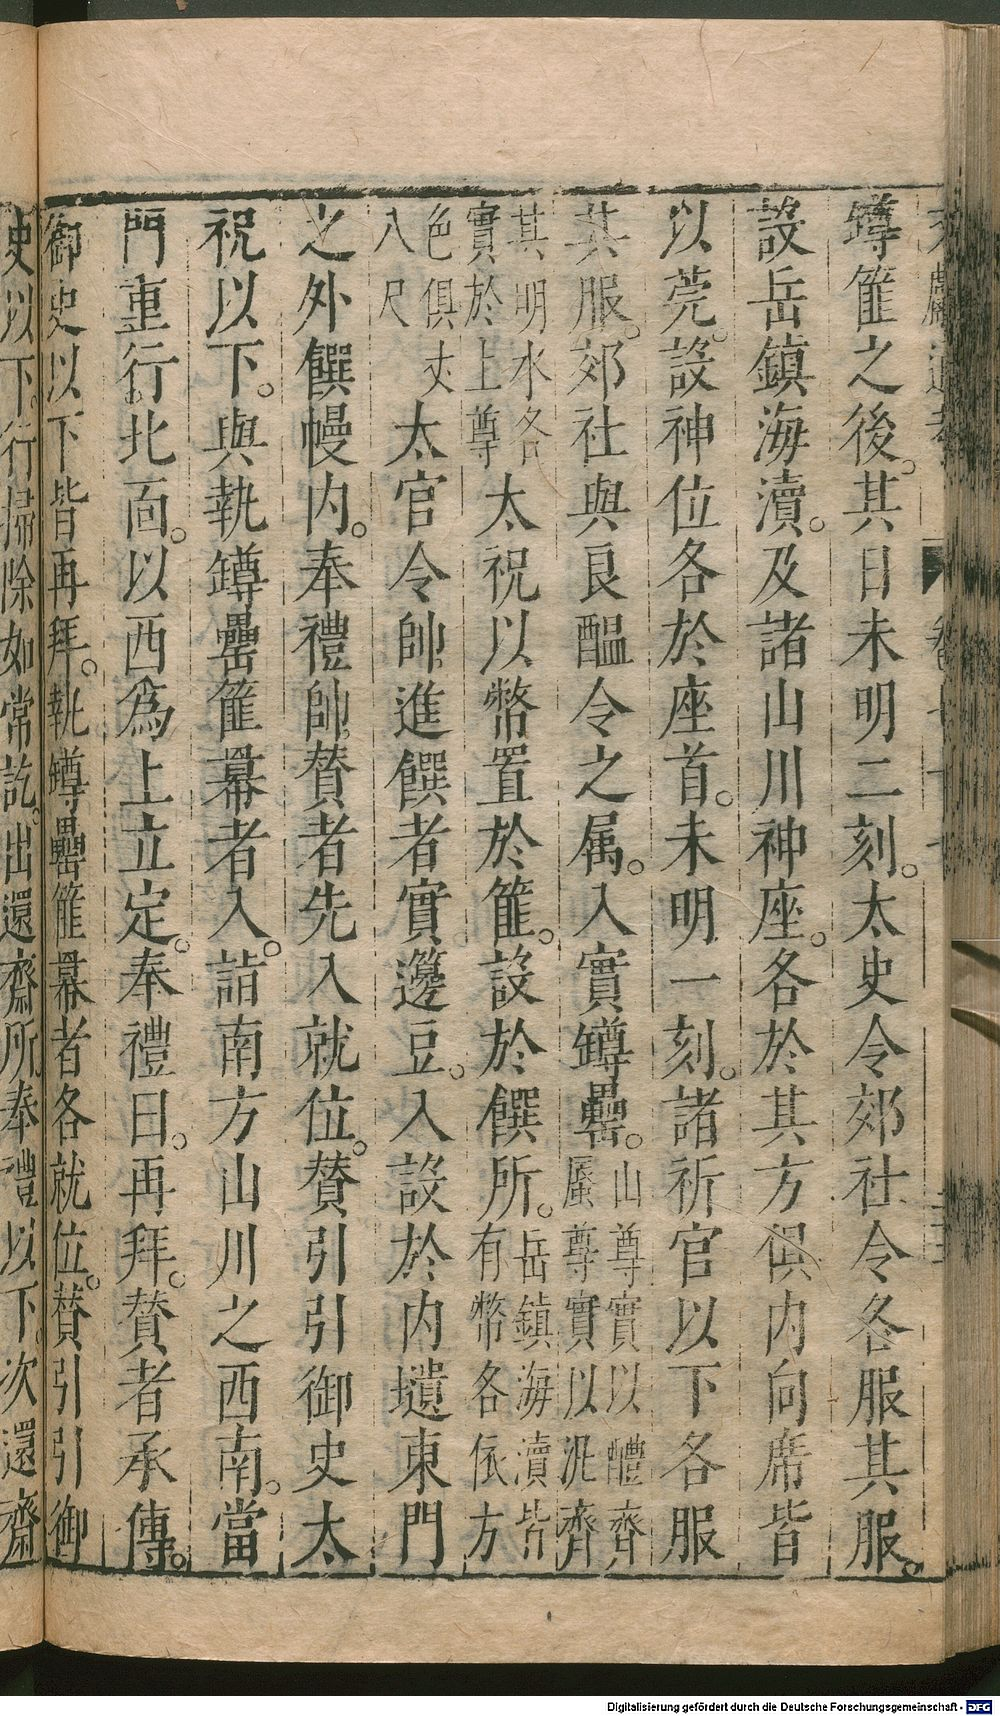 罇篚之後。其日未明二刻。太史令郊社令各服其服。
設岳鎮海瀆。及諸山川神座。各於其方俱内向席皆
以莞。設神位各於座首。未明一刻。諸祈官以下各服
其服。郊社與良醞令之属。入實罇罍。山尊實以醴齊
蜃尊實以汎齊
其明水各
實於上尊
太祝以幣置於篚。設於饌所。岳鎮海瀆皆
有幣各依方
色俱丈
八尺
太官令帥進饌者實籩豆。入設於内壝東門
之外饌幔内。奉禮帥賛者先入就位。賛引引御史太
祝以下。與執罇罍篚冪者入。詣南方山川之西南。當
門重行。北面。以西為上立定。奉禮曰。再拜。賛者承傳。
御史以下皆再拜。執罇罍篚冪者各就位。賛引引御
史以下。行掃除如常訖。出還齋所奉禮以下。次還齋
Digitalisierung gefördert durch die Deutsche Forschungsgemeinschaft - DFG